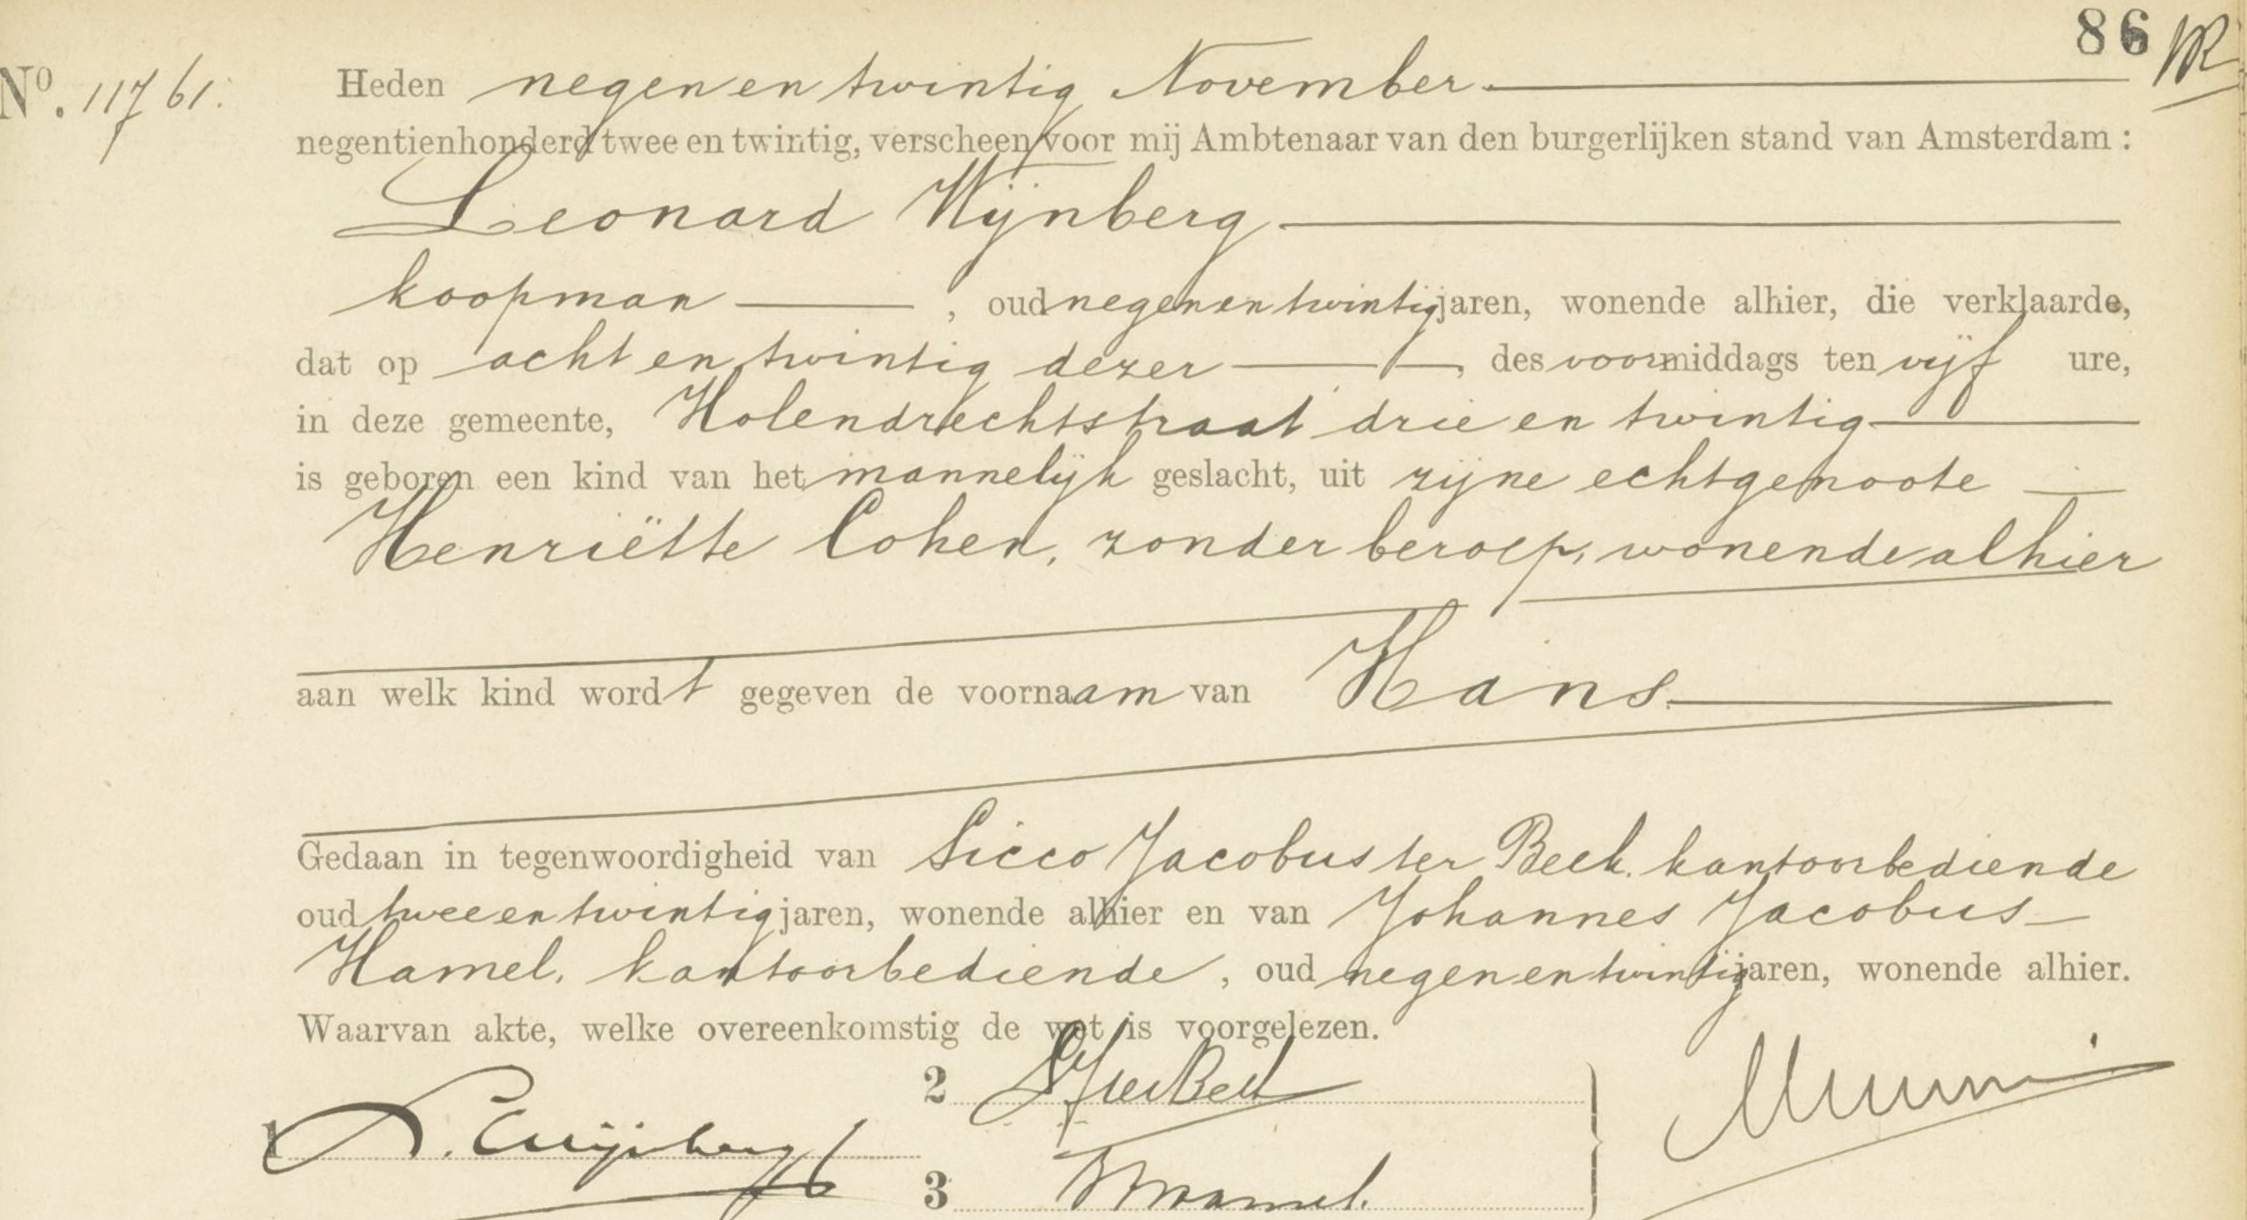 86
No. 11761.
Heden negen en twintig November
negentienhonderd twee en twintig, verscheen voor mij Ambtenaar van den burgerlijken stand van Amsterdam :
Leonard Wijnberg
koopman , oud negen en twintig jaren, wonende alhier, die verklaarde,
dat op acht en twintig dezer , des voormiddags ten vijf ure,
in deze gemeente, Holendrechtstraat drie en twintig
is geboren een kind van het mannelijk geslacht, uit zijne echtgenoote
Henriëtte Cohen, zonder beroep, wonende alhier
aan welk kind wordt gegeven de voornaam van Hans
Gedaan in tegenwoordigheid van Sicco Jacobus ter Beek, kantoorbediende
oud twee en twintig jaren, wonende alhier en van Johannes Jacobus
Hamel, kantoorbediende , oud negen en twintig jaren, wonende alhier.
Waarvan akte, welke overeenkomstig de wet is voorgelezen.
2 SJterBeek
1 L. Wijnberg
3 Hamel.